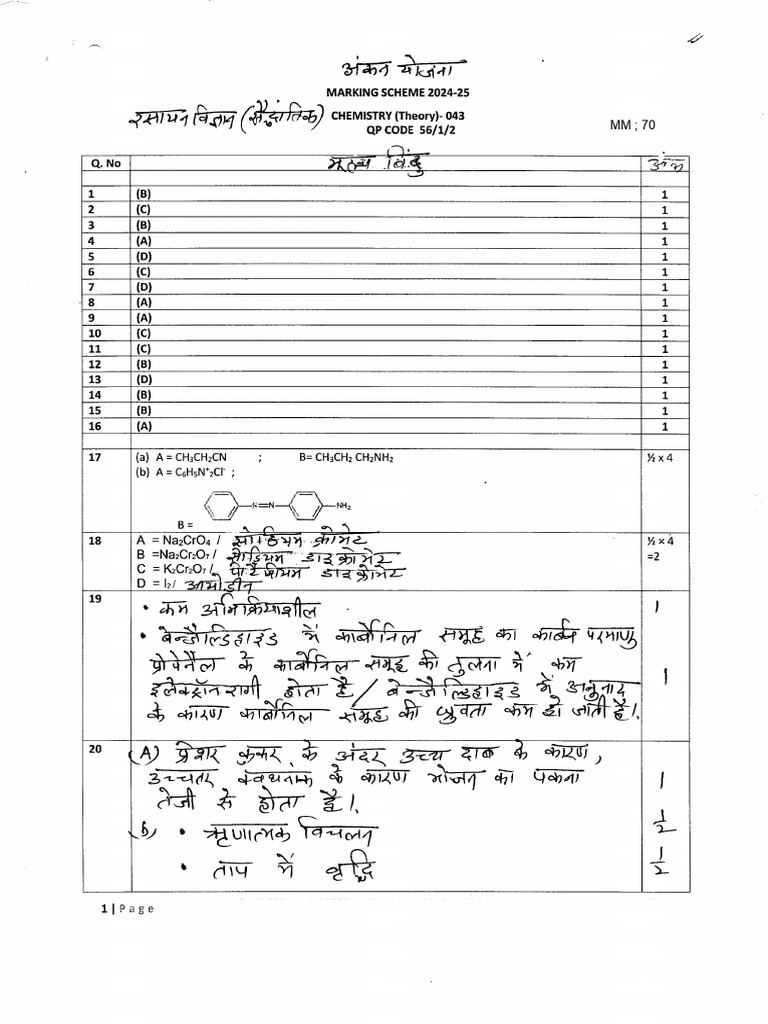 अंकन योजना
MARKING SCHEME 2024-25
रसायन विज्ञान (सैद्धांतिक) CHEMISTRY (Theory)- 043
QP CODE 56/1/2 MM ; 70
Q. No मूल्य बिंदु अंक
1 (B) 1
2 (C) 1
3 (B) 1
4 (A) 1
5 (D) 1
6 (C) 1
7 (D) 1
8 (A) 1
9 (A) 1
10 (C) 1
11 (C) 1
12 (B) 1
13 (D) 1
14 (B) 1
15 (B) 1
16 (A) 1
17 (a) A = CH₃CH₂CN ; B= CH₃CH₂ CH₂NH₂ ½ x 4
(b) A = C₆H₅N⁺₂Cl⁻ ;
N=N NH₂
B =
18 A = Na₂CrO₄ / सोडियम क्रोमेट ½ × 4
B =Na₂Cr₂O₇ / सोडियम डाइक्रोमेट =2
C = K₂Cr₂O₇ / पोटैशियम डाइक्रोमेट
D = I₂ / आयोडीन
19 • कम अभिक्रियाशील 1
• बेन्जैल्डिहाइड में कार्बोनिल समूह का कार्बन परमाणु
प्रोपेनैल के कार्बोनिल समूह की तुलना में कम 1
इलेक्ट्रॉनरागी होता है / बेन्जैल्डिहाइड में अनुनाद
के कारण कार्बोनिल समूह की ध्रुवता कम हो जाती है।
20 (A) प्रेशर कुकर के अंदर उच्च दाब के कारण,
उच्चतर क्वथनांक के कारण भोजन का पकना 1
तेजी से होता है।
(b) • ऋणात्मक विचलन ½
• ताप में वृद्धि ½
1 | Page